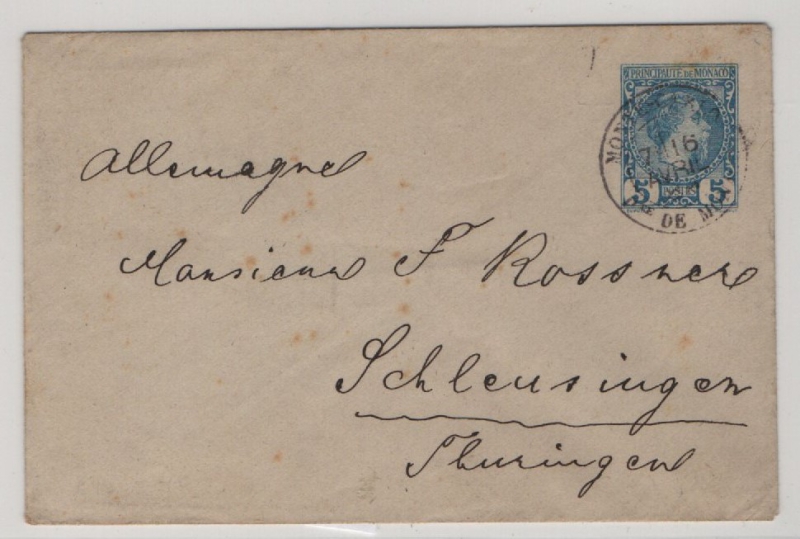 PRINCIPAUTE DE MONACO
MON
16
AVRIL
5 5
DE MO
Allemagne
Monsieur F Rossner
Schleusingen
Thuringen